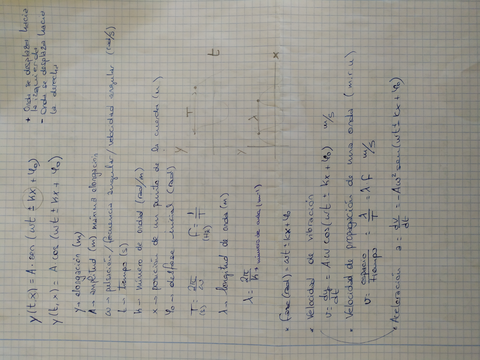 y(t,x) = A · sen (ωt ± kx + φ₀)
y(t,x) = A cos (ωt ± kx + φ₀)
+ Onda se desplaza hacia la izquierda
- Onda se desplaza hacia la derecha
y → elongación (m)
A → amplitud (m) máxima elongación
ω → pulsación/frecuencia angular/velocidad angular (rad/s)
t → tiempo (s)
k → número de onda (rad/m)
x → posición de un punto de la cuerda (m)
φ₀ → desfase inicial (rad)
T = 2π/ω (s)
f = 1/T (Hz)
y
T
t
λ → longitud de onda (m)
λ = 2π/k
y
λ
x
• Fase (rad) = ωt ± kx + φ₀
• Velocidad de vibración
v = dy/dt = Aω cos (ωt ± kx + φ₀) m/s
• Velocidad de propagación de una onda (m.r.u)
v = espacio/tiempo = λ/T = λ · f m/s
• Aceleración a = dv/dt = -Aω² sen (ωt ± kx + φ₀)